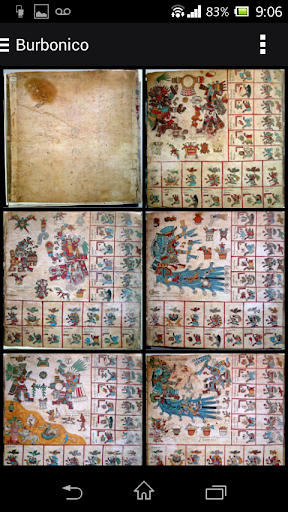 83% 9:06
Burbonico